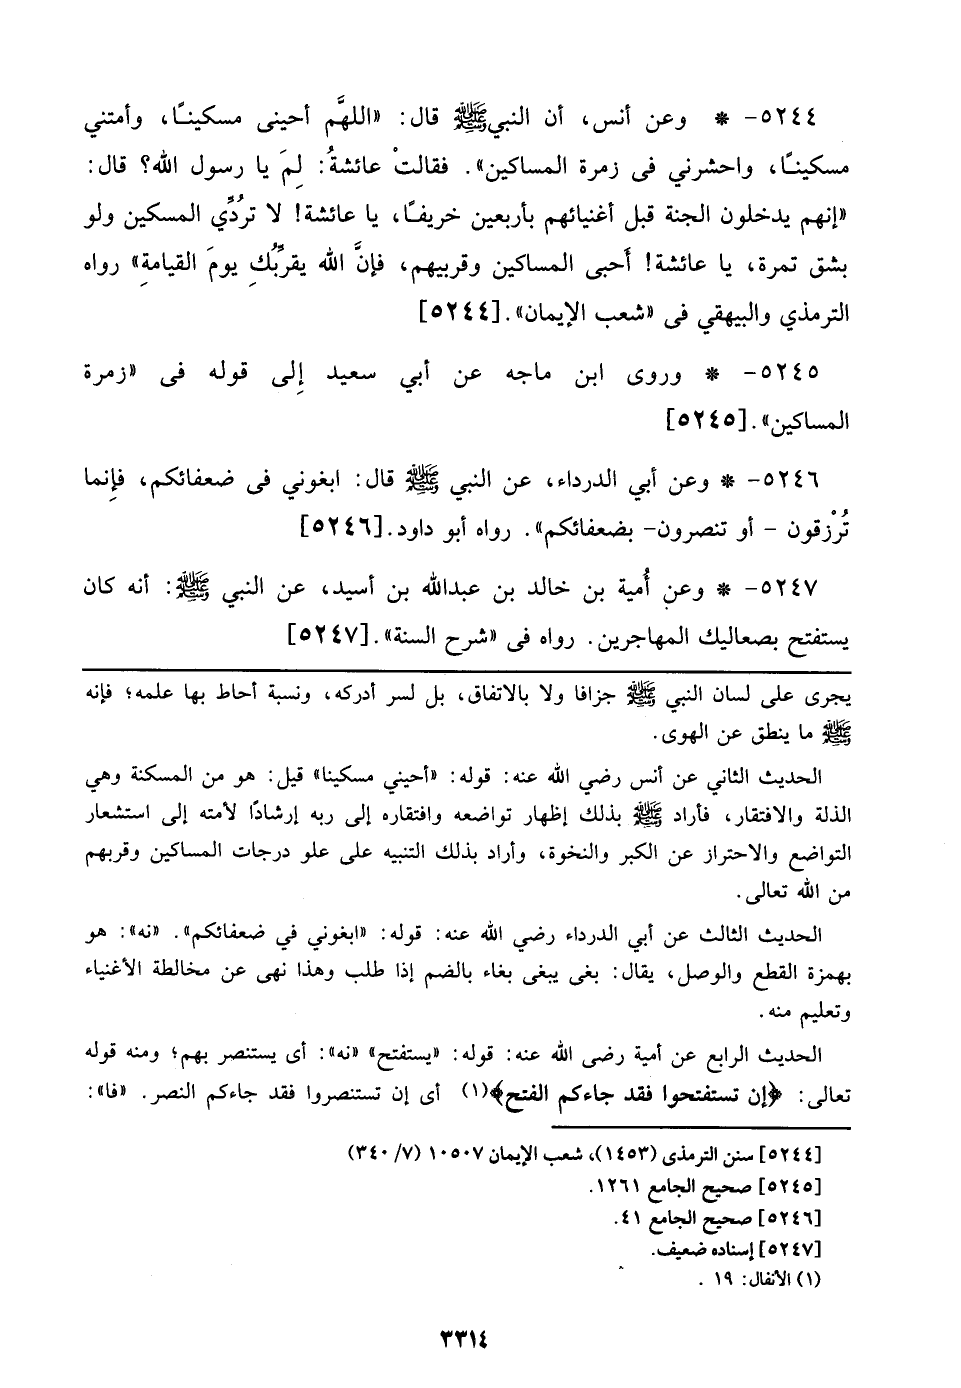 ٥٢٤٤- * وعن أنس، أن النبي ﷺ قال: «اللهَّم أحينى مسكينًا، وأمتني
مسكينًا، واحشرني فى زمرة المساكين». فقالتْ عائشةُ: لِمَ يا رسول الله؟ قال:
«إنهم يدخلون الجنة قبل أغنيائهم بأربعين خريفًا، يا عائشة! لا تُردِّي المسكين ولو
بشق تمرة، يا عائشة! أَحبى المساكين وقربيهم، فإنَّ الله يقرِّبُكِ يومَ القيامةِ» رواه
الترمذي والبيهقي فى «شعب الإيمان».[٥٢٤٤]
٥٢٤٥- * وروى ابن ماجه عن أبي سعيد إِلى قوله فى «زمرة
المساكين».[٥٢٤٥]
٥٢٤٦- * وعن أبي الدرداء، عن النبي ﷺ قال: ابغوني فى ضعفائكم، فإِنما
تُرْزقون - أو تنصرون- بضعفائكم». رواه أبو داود.[٥٢٤٦]
٥٢٤٧- * وعن أُمية بن خالد بن عبدالله بن أسيد، عن النبي ﷺ: أنه كان
يستفتح بصعاليك المهاجرين. رواه فى «شرح السنة».[٥٢٤٧]
يجرى على لسان النبي ﷺ جزافا ولا بالاتفاق، بل لسر أدركه، ونسبة أحاط بها علمه؛ فإنه
ﷺ ما ينطق عن الهوى.
الحديث الثاني عن أنس رضي الله عنه: قوله: «أحيني مسكينا» قيل: هو من المسكنة وهي
الذلة والافتقار، فأراد ﷺ بذلك إظهار تواضعه وافتقاره إلى ربه إرشادًا لأمته إلى استشعار
التواضع والاحتراز عن الكبر والنخوة، وأراد بذلك التنبيه على علو درجات المساكين وقربهم
من الله تعالى.
الحديث الثالث عن أبي الدرداء رضي الله عنه: قوله: «ابغوني في ضعفائكم». «نه»: هو
بهمزة القطع والوصل، يقال: بغى يبغى بغاء بالضم إذا طلب وهذا نهى عن مخالطة الأغنياء
وتعليم منه.
الحديث الرابع عن أمية رضى الله عنه: قوله: «يستفتح» «نه»: أى يستنصر بهم؛ ومنه قوله
تعالى: ﴿إن تستفتحوا فقد جاءكم الفتح﴾(١) أى إن تستنصروا فقد جاءكم النصر. «فا»:
[٥٢٤٤] سنن الترمذى (١٤٥٣)، شعب الإيمان ١٠٥٠٧ (٧/ ٣٤٠)
[٥٢٤٥] صحيح الجامع ١٢٦١.
[٥٢٤٦] صحيح الجامع ٤١.
[٥٢٤٧] إسناده ضعيف.
(١) الأنفال: ١٩ .
٣٣١٤